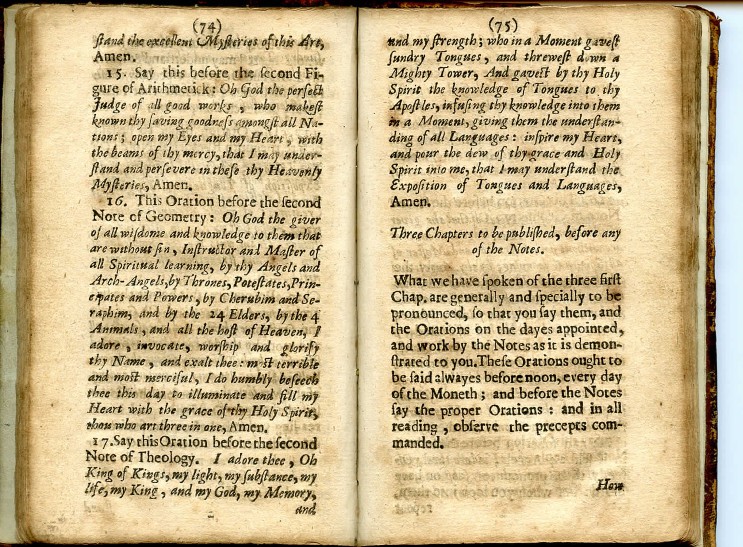 (74)
ſtand the excellent Myſteries of this Art,
Amen.
15. Say this before the ſecond Fi-
gure of Arithmetick: Oh God the perfect
Judge of all good works, who makeſt
known thy ſaving goodneſs amongſt all Na-
tions; open my Eyes and my Heart, with
the beams of thy mercy, that I may under-
ſtand and perſevere in theſe thy Heavenly
Myſteries, Amen.
16. This Oration before the ſecond
Note of Geometry: Oh God the giver
of all wiſdome and knowledge to them that
are without ſin, Inſtructor and Maſter of
all Spiritual learning, by thy Angels and
Arch-Angels, by Thrones, Poteſtates, Prin-
cipates and Powers, by Cherubim and Se-
raphim, and by the 24 Elders, by the 4
Animals, and all the hoſt of Heaven, I
adore, invocate, worſhip and glorify
thy Name, and exalt thee: moſt terrible
and moſt merciful, I do humbly beſeech
thee this day to illuminate and fill my
Heart with the grace of thy Holy Spirit,
thou who art three in one, Amen.
17. Say this Oration before the ſecond
Note of Theology. I adore thee, Oh
King of Kings, my light, my ſubſtance, my
life, my King, and my God, my Memory,
and
(75)
and my ſtrength; who in a Moment gaveſt
ſundry Tongues, and threweſt down a
Mighty Tower, And gaveſt by thy Holy
Spirit the knowledge of Tongues to thy
Apoſtles, infuſing thy knowledge into them
in a Moment, giving them the underſtan-
ding of all Languages: inſpire my Heart,
and pour the dew of thy grace and Holy
Spirit into me, that I may underſtand the
Expoſition of Tongues and Languages,
Amen.
Three Chapters to be publiſhed, before any
of the Notes.
What we have ſpoken of the three firſt
Chap. are generally and ſpecially to be
pronounced, ſo that you ſay them, and
the Orations on the dayes appointed,
and work by the Notes as it is demon-
ſtrated to you. Theſe Orations ought to
be ſaid alwayes before noon, every day
of the Moneth; and before the Notes
ſay the proper Orations: and in all
reading, obſerve the precepts com-
manded.
How